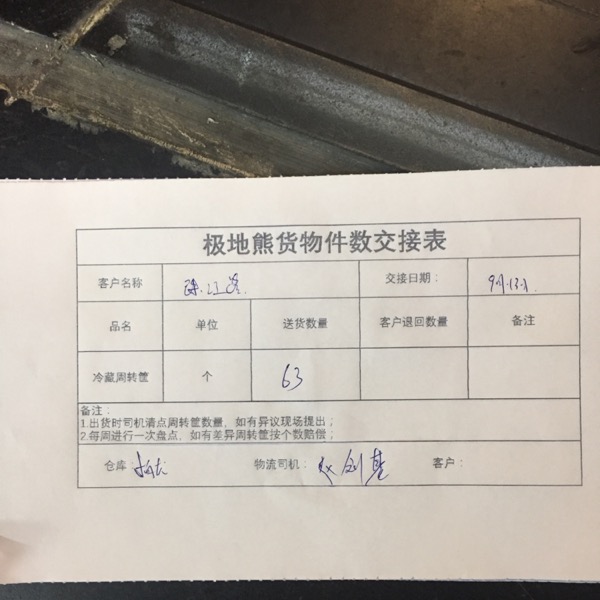 极地熊货物件数交接表
客户名称 交接日期： 9月13日
品名 单位 送货数量 客户退回数量 备注
冷藏周转筐 个 63
备注：
1.出货时司机请点周转筐数量，如有异议现场提出；
2.每周进行一次盘点，如有差异周转筐按个数赔偿；
仓库： 物流司机： 客户：